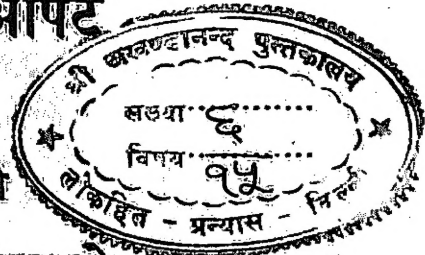 श्री अखण्डानन्द पुस्तकालय
सङ्ख्या ६
विषय १५
लोकहित - प्रन्यास -